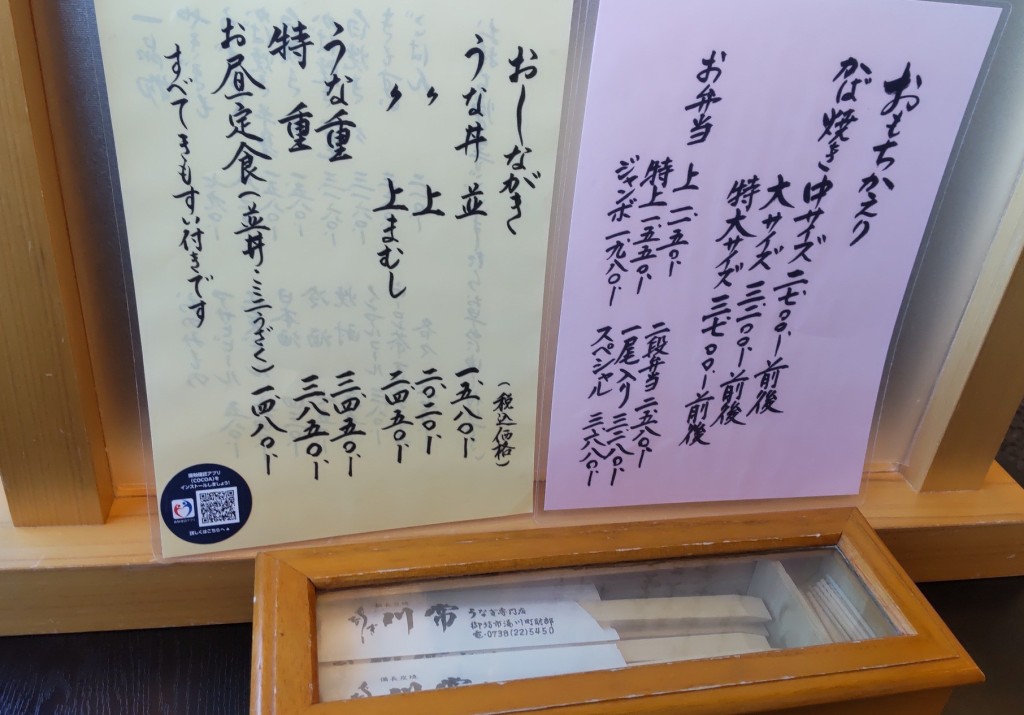 おもちかえり
かば焼き 中サイズ 二、七〇〇.ー 前後
大サイズ 三、二〇〇.ー 前後
特大サイズ 三、七〇〇.ー 前後
お弁当
上 一、一五〇.ー
特上 一、五五〇.ー
ジャンボ 一、九八〇.ー
二段弁当 二、五八〇.ー
一尾入り 三、二八〇.ー
スペシャル 三、六八〇.ー
おしながき (税込価格)
うな丼 並 一、五八〇.ー
〃 上 二、〇二〇.ー
〃 上まむし 二、四五〇.ー
うな重 三、四五〇.ー
特重 三、八五〇.ー
お昼定食(並丼・ミニうざく) 一、四八〇.ー
すべてきもすい付きです
接触確認アプリ
(COCOA)を
インストールしましょう!
詳しくはこちらへ▲
川常
うなぎ専門店
御坊市湯川町財部
☎0738(22)5450
備長炭焼
川常